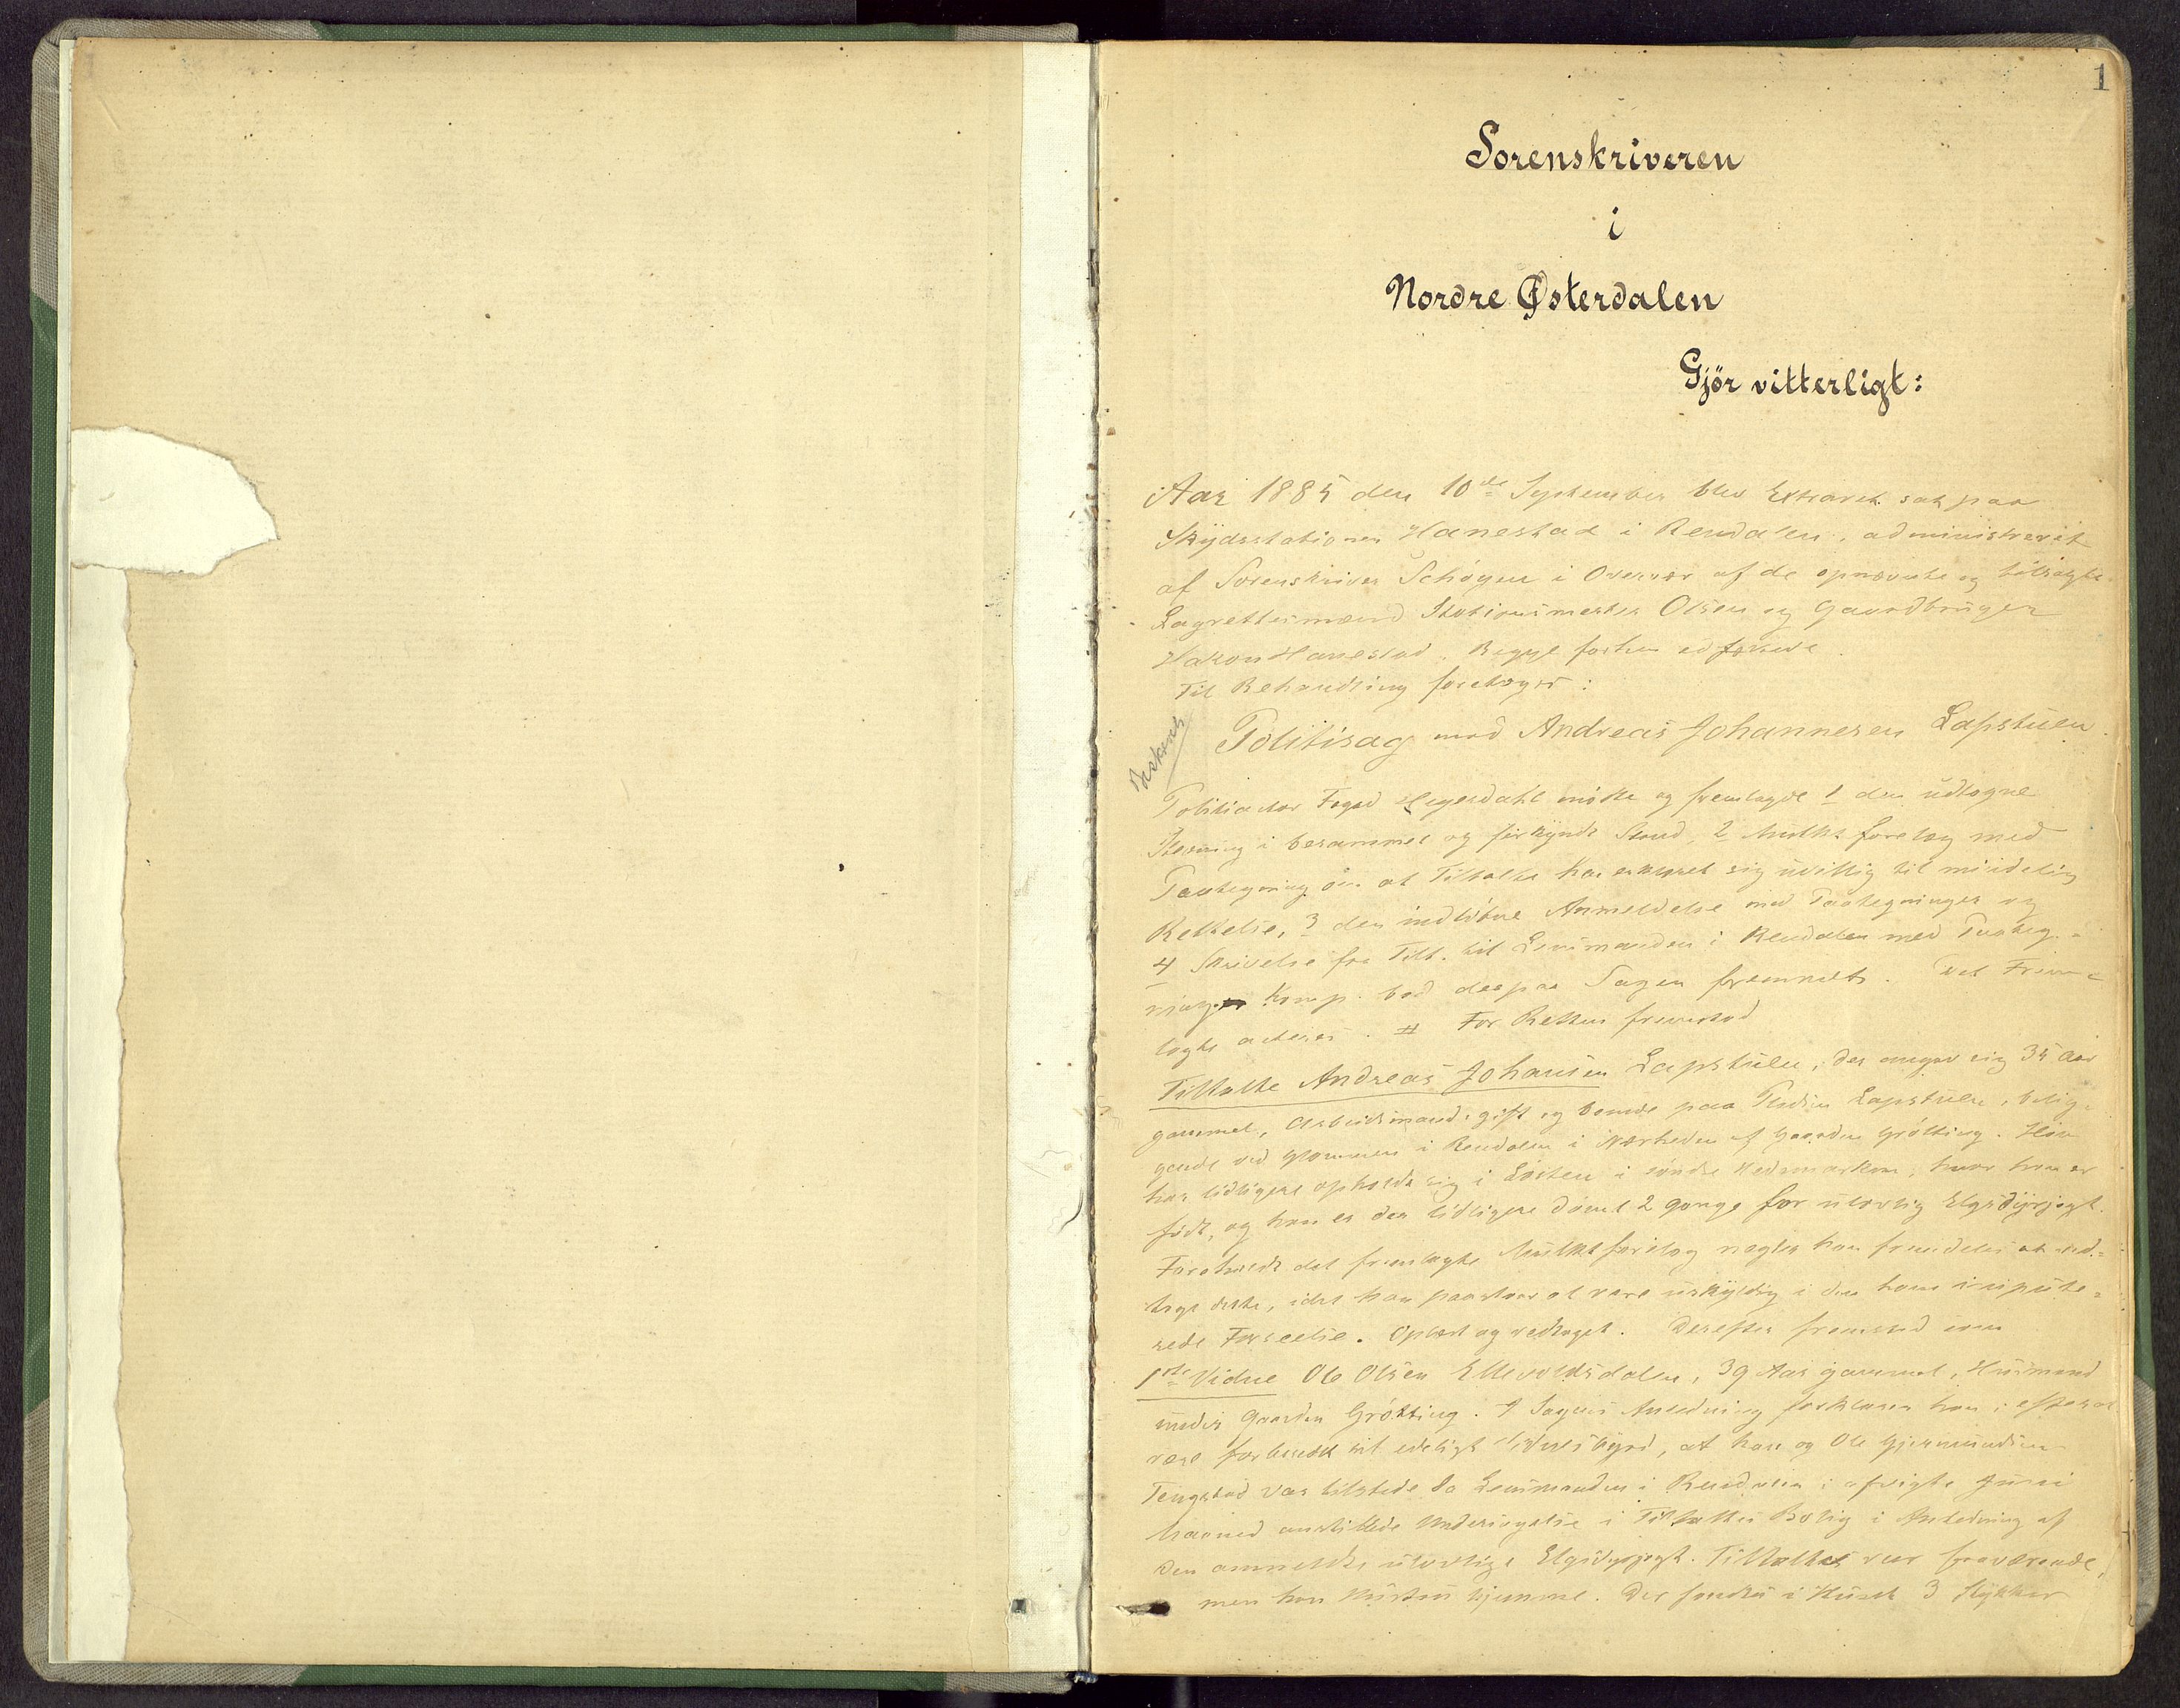 1
Sorenskriveren
i
Nordre Østerdalen
Gjör vitterligt:
Aar 1885 den 10de September blev Extraret sat paa
Skydsstationen Hanestad i Rendalen, administreret
af Sorenskriver Schøyen i Overvær af de opnævnte og tilsagte
Lagrettesmænd Stationsmester Olsen og Gaardbruger
Hakon Hanestad. Begge forhen edfæstede.
Til Behandling foretoges:
Politisag mod Andreas Johannesen Lapstuen.
Beskrevet
Politiactor Foged Hegerdahl mødte og fremlagde 1 den udtagne
Stevning i berammet og forkyndt Stand, 2 Mulkt forelæg med
Paategning om at Tiltalte har erklæret sig uvillig til mindelig
Rettelse, 3 den indløbne Anmeldelse med Paategninger og
4 Skrivelse fra Tilt. til Lensmanden i Rendalen med Paateg-
ning. Komp. bad derpaa Sagen fremmet. Det Frem-
lagte acteres. # For Retten fremstod
Tiltalte Andreas Johansen Lapstuen, der angav sig 35 Aar
gammel, Arbeidsmand, gift og boende paa Pladsen Lapstuen, belig-
gende ved Glommen i Rendalen i Nærheden af Gaarden Grøtting. Han
har tidligere opholdt sig i Løiten i søndre Hedemarken, hvor han er
født, og han er der tidligere dømt 2 gange for ulovlig Elgsdyrjagt.
Foreholdt det fremlagte Mulktforelæg negter han fremdeles at ved-
tage dette, idet han paastaar at være uskyldig i den ham impute-
rede Forseelse. Oplæst og vedtaget. Derefter fremstod som
1ste Vidne Ole Olsen Ellevoldsdalen, 39 Aar gammel, Husmand
under Gaarden Grøtting. I Sagens Anledning forklarer han, efter at
være forberedt til edeligt Vidnesbyrd, at han og Ole Gjermundsen
Tengstad var tilstede da Lensmanden i Rendalen i afvigte Juni
Maaned anstillede Undersøgelse i Tiltaltes Bolig i Anledning af
den anmeldte ulovlige Elgsdyrjagt. Tiltalte var fraværende,
men hans Hustru hjemme. Der fandtes i Huset 3 Stykker